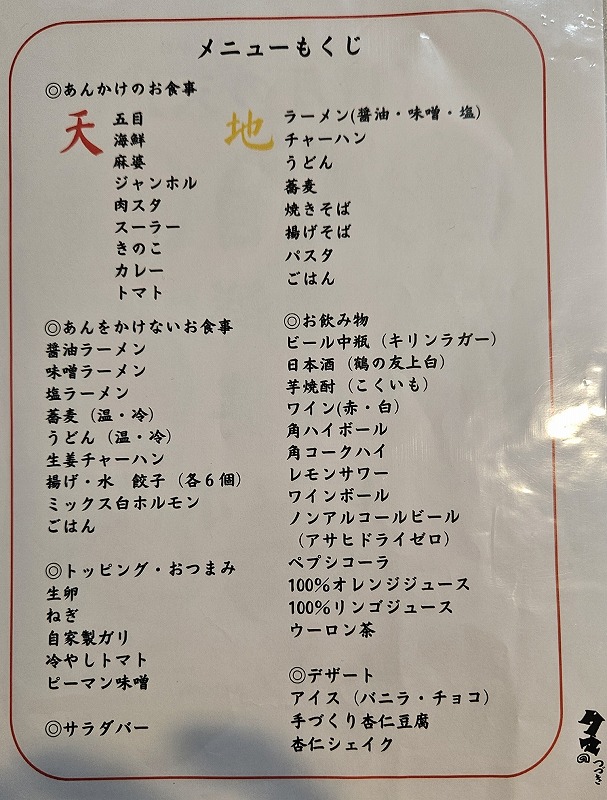 メニューもくじ
◎あんかけのお食事
天
五目
海鮮
麻婆
ジャンホル
肉スタ
スーラー
きのこ
カレー
トマト
地
ラーメン(醤油・味噌・塩)
チャーハン
うどん
蕎麦
焼きそば
揚げそば
パスタ
ごはん
◎あんをかけないお食事
醤油ラーメン
味噌ラーメン
塩ラーメン
蕎麦（温・冷）
うどん（温・冷）
生姜チャーハン
揚げ・水　餃子（各６個）
ミックス白ホルモン
ごはん
◎トッピング・おつまみ
生卵
ねぎ
自家製ガリ
冷やしトマト
ピーマン味噌
◎サラダバー
◎お飲み物
ビール中瓶（キリンラガー）
日本酒（鶴の友上白）
芋焼酎（こくいも）
ワイン(赤・白）
角ハイボール
角コークハイ
レモンサワー
ワインボール
ノンアルコールビール
（アサヒドライゼロ）
ペプシコーラ
100％オレンジジュース
100％リンゴジュース
ウーロン茶
◎デザート
アイス（バニラ・チョコ）
手づくり杏仁豆腐
杏仁シェイク
つづき